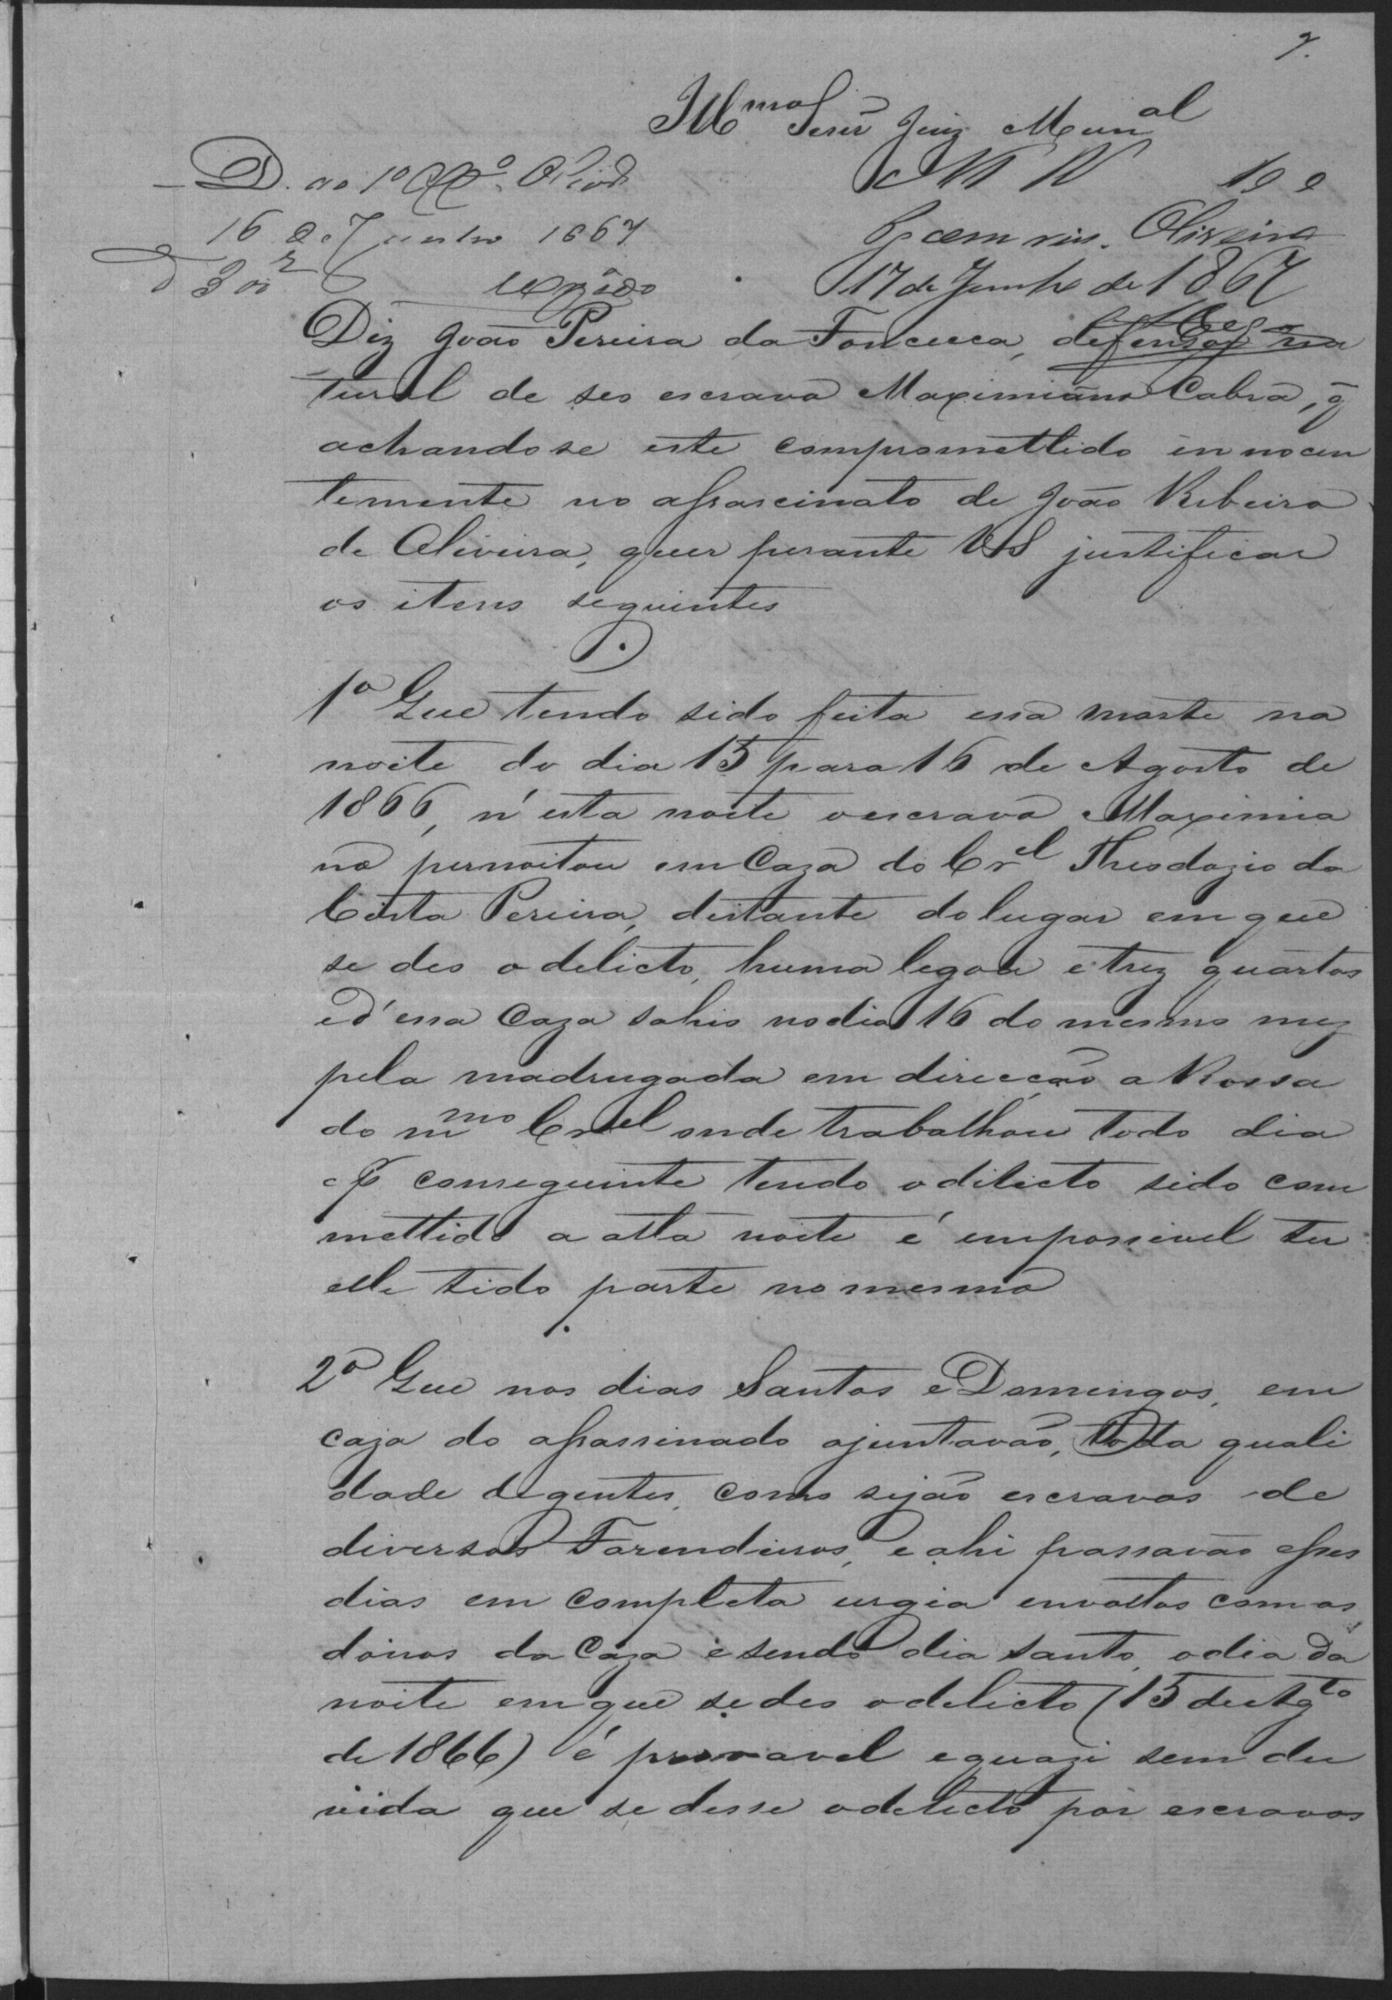 7.
Illmo Senr Juiz Munal
D. ao 1o Offo.
16 de Junho 1867
17 de Junho de 1867
Oliveira
Diz João Pereira da Fonceca, defensor na
tural de seo escravo Maximiano Cabra, q̃
achandose este compromettido innocen
temente no assascinato de João Ribeiro
de Oliveira, quer perante VS justificar
os itens seguintes
P.
1o Que tendo sido feita essa morte na
noite do dia 15 para 16 de Agosto de
1866, n'esta noite o escravo Maximia
no pernoitou em Caza do Crel Theodozio da
Costa Pereira, distante do lugar em que
se deo o delicto, huma legoa e trez quartos
e d'essa Caza sahio no dia 16 do mesmo mez
pela madrugada em direcção a Rossa
do mmo Crel onde trabalhou todo dia
e p conseguinte tendo o dilicto sido com
mettido a alta noite é impossivel ter
elle tido parte no mesmo
2o Que nos dias Santos e Domingos, em
caza do assassinado ajuntavão, toda quali
dade de gentes, como sejão escravos de
diversos Fazendeiros, e ahi passavão esses
dias em completa urgia envoltos com os
donos da Caza e sendo dia santo, o dia da
noite em que se deo o delicto (15 de Agto
de 1866) é provavel e quazi sem du
vida que se desse o delicto por escravos